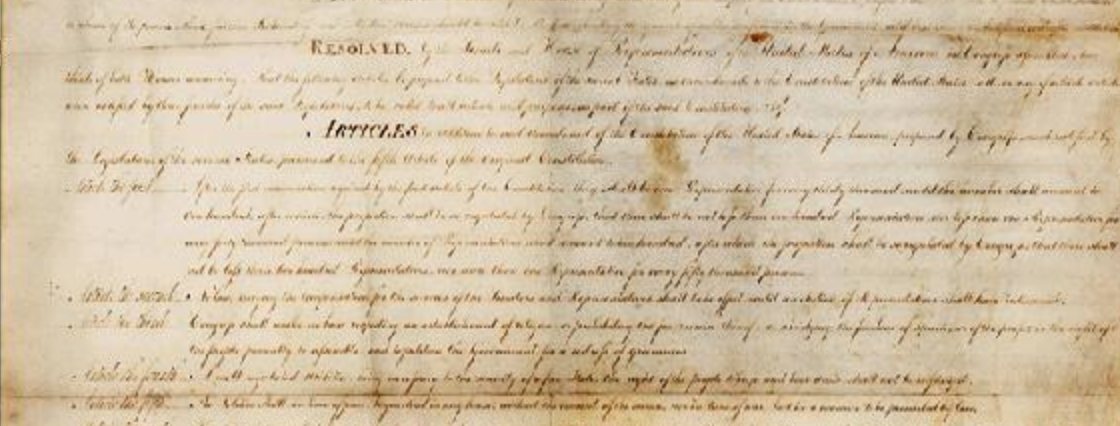 RESOLVED, by the Senate and House of Representatives of the United States of America in Congress assembled, two
thirds of both Houses concurring, that the following Articles be proposed to the Legislatures of the several States, as amendments to the Constitution of the United States, all or any of which articles
when ratified by three fourths of the said Legislatures, to be valid to all intents and purposes as part of the said Constitution. viz.
ARTICLES in addition to, and Amendment of the Constitution of the United States of America, proposed by Congress and ratified by
the Legislatures of the several States, pursuant to the fifth Article of the original Constitution.
Article the first. After the first enumeration required by the first article of the Constitution, there shall be one Representative for every thirty thousand, until the number shall amount to
one hundred, after which the proportion shall be so regulated by Congress, that there shall be not less than one hundred Representatives, nor less than one Representative for
every forty thousand persons, until the number of Representatives shall amount to two hundred, after which the proportion shall be so regulated by Congress, that there shall
not be less than two hundred Representatives, nor more than one Representative for every fifty thousand persons.
Article the second. No law, varying the compensation for the services of the Senators and Representatives, shall take effect, until an election of Representatives shall have intervened.
Article the third. Congress shall make no law respecting an establishment of religion, or prohibiting the free exercise thereof; or abridging the freedom of speech, or of the press; or the right of
the people peaceably to assemble, and to petition the Government for a redress of grievances.
Article the fourth. A well regulated Militia, being necessary to the security of a free State, the right of the people to keep and bear Arms, shall not be infringed.
Article the fifth. No Soldier shall, in time of peace be quartered in any house, without the consent of the owner, nor in time of war, but in a manner to be prescribed by law.